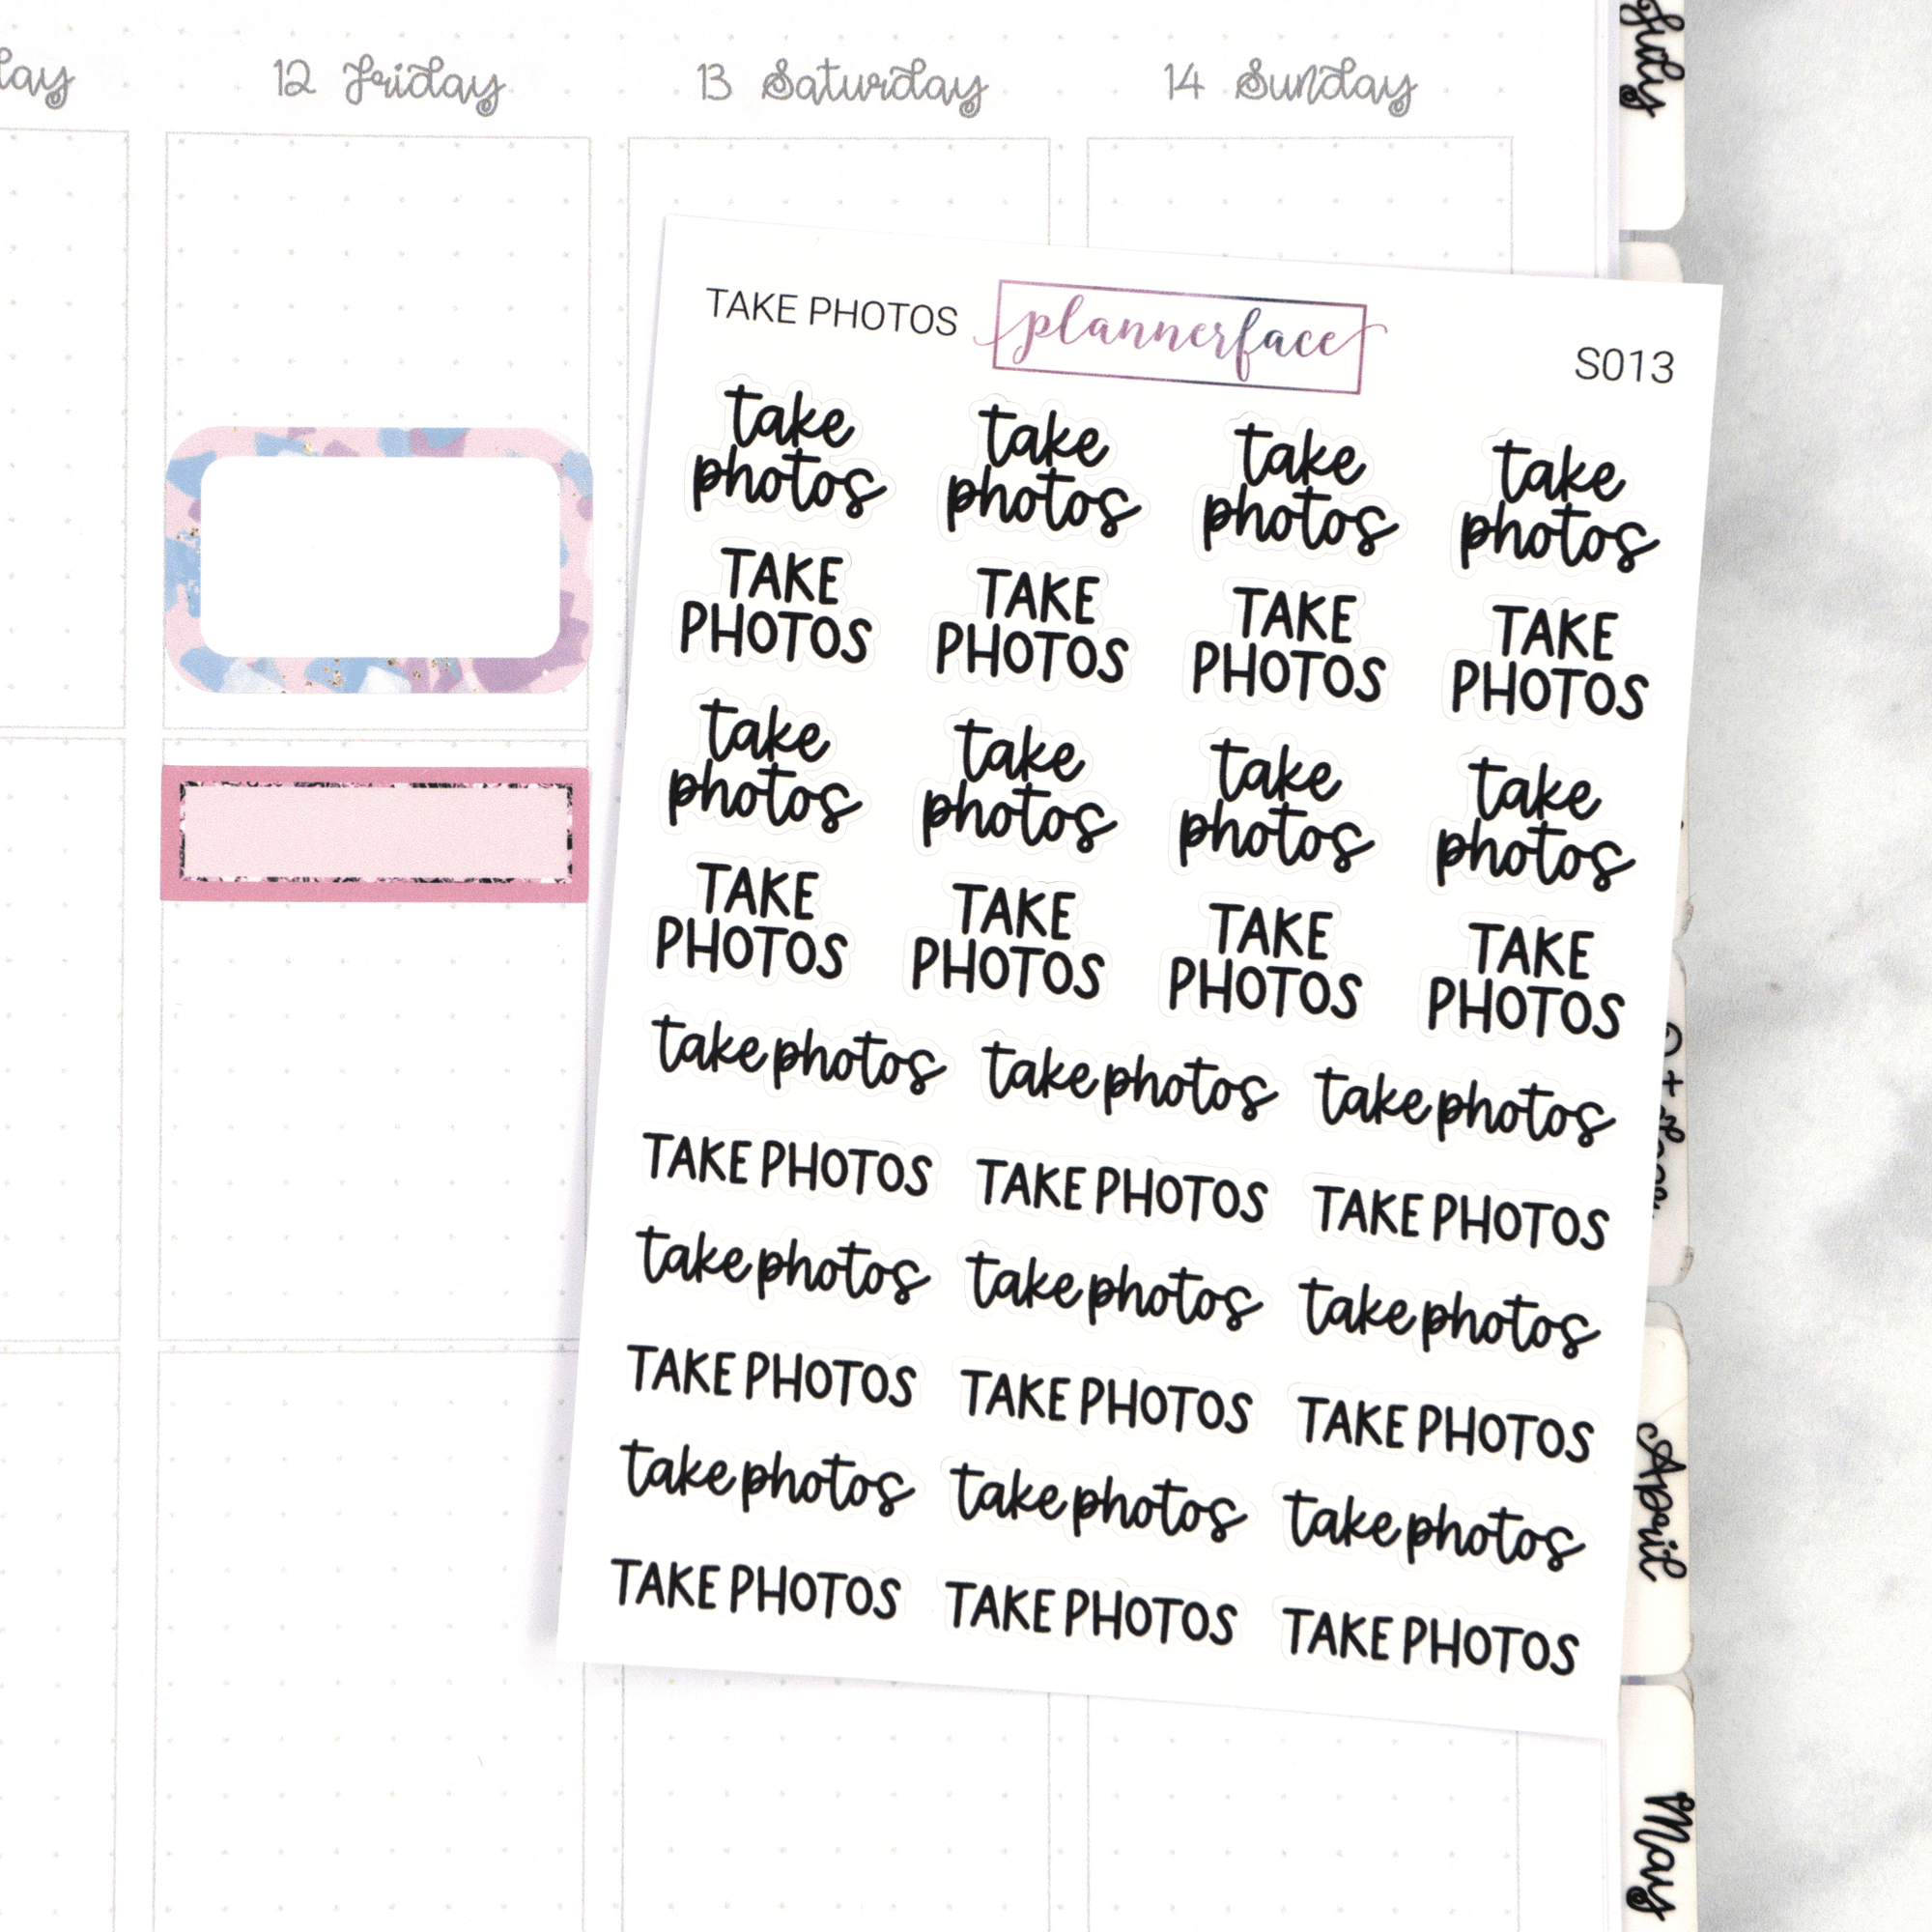 12 Friday
13 Saturday
14 Sunday
July
TAKE PHOTOS
plannerface
S013
take
photos
take
photos
take
photos
take
photos
TAKE
PHOTOS
TAKE
PHOTOS
TAKE
PHOTOS
TAKE
PHOTOS
take
photos
take
photos
take
photos
take
photos
TAKE
PHOTOS
TAKE
PHOTOS
TAKE
PHOTOS
TAKE
PHOTOS
take photos
take photos
take photos
TAKE PHOTOS
TAKE PHOTOS
TAKE PHOTOS
take photos
take photos
take photos
TAKE PHOTOS
TAKE PHOTOS
TAKE PHOTOS
take photos
take photos
take photos
TAKE PHOTOS
TAKE PHOTOS
TAKE PHOTOS
April
May